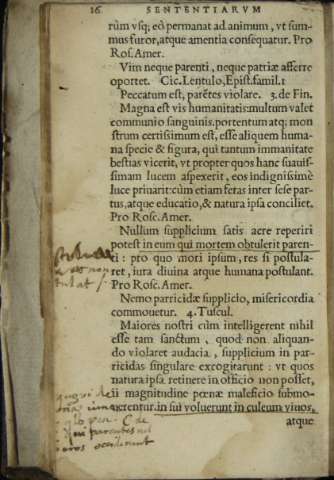 16 SENTENTIARVM
rùm vsq; eò permanat ad animum, vt sum-
mus furor, atque amentia consequatur. Pro
Ros. Amer.
Vim neque parenti, neque patriæ afferre
oportet. Cic. Lentulo, Epist. famil. 1
Peccatum est, parẽtes violare. 3. de Fin.
Magna est vis humanitatis: multum valet
communio sanguinis. portentum atq; mon
strum certissimum est, esse aliquem huma-
na specie & figura, qui tantum immanitate
bestias vicerit, vt propter quos hanc suauis-
simam lucem aspexerit, eos indignissimè
luce priuarit: cùm etiam feras inter sese par-
tus, atque educatio, & natura ipsa conciliet.
Pro Rosc. Amer.
Nullum supplicium satis acre reperiri
potest in eum qui mortem obtulerit paren-
ti: pro quo mori ipsum, res si postula-
ret, iura diuina atque humana postulant.
Pro Rosc. Amer.
Nemo parricidæ supplicio, misericordia
commouetur. 4. Tuscul.
Maiores nostri cùm intelligerent nihil
esse tam sanctum, quod non aliquan-
do violaret audacia, supplicium in par-
ricidas singulare excogitarunt: vt quos
natura ipsa retinere in officio non posset,
ii magnitudine pœnæ maleficio submo-
uerentur. in sui voluerunt in culeum viuos,
atque
qui parentes
occiderunt